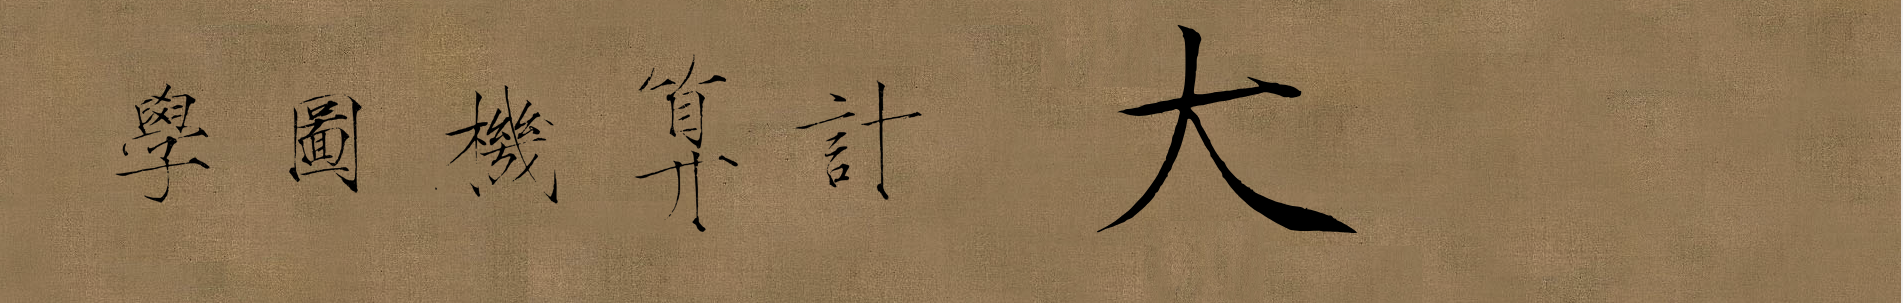 大 計算機圖學